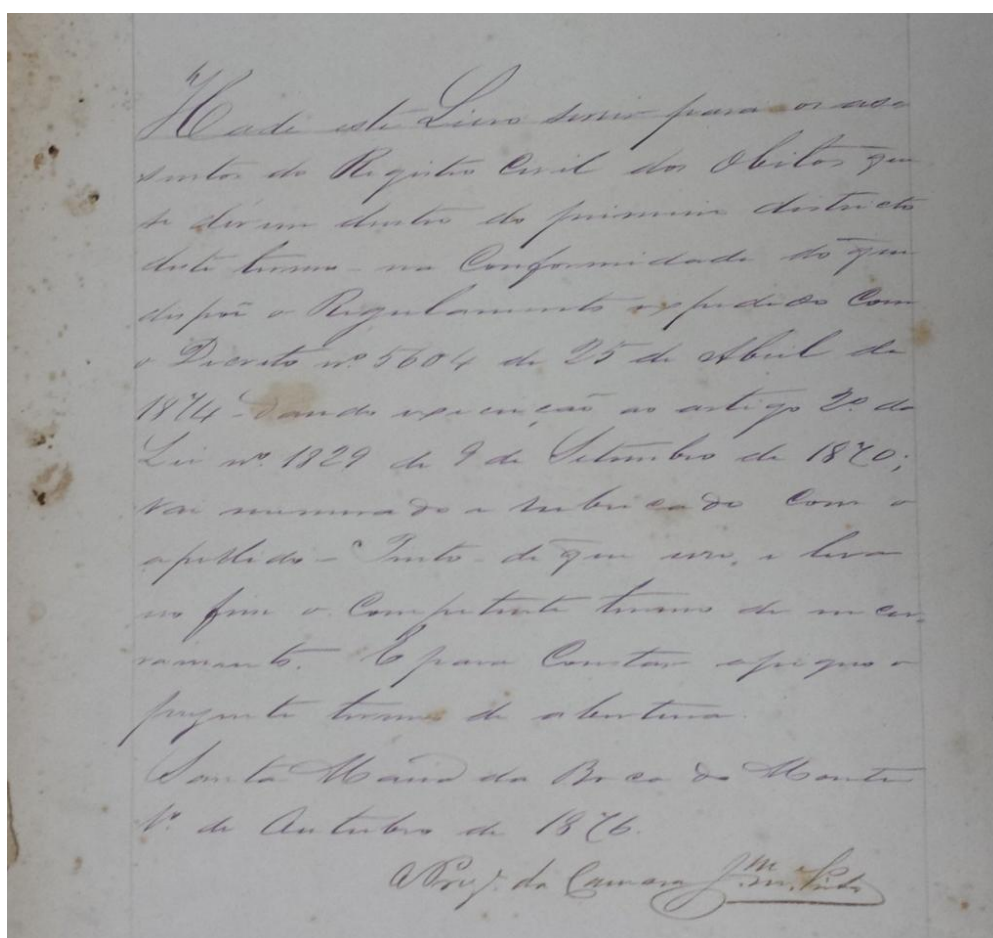 Hade este Livro servir para os as-
sentos do Registro Civil dos Obitos que
se dérem dentro do primeiro districto
deste termo - na Conformidade do que
dispõe o Regulamento expedido Com
o Decreto nº 5604 de 25 de Abril de
1874 - dando execução ao artigo 2º da
Lei nº 1829 de 9 de Setembro de 1870;
vai numerado e rubricado Com o
apellido - Pinto - de que uso, e leva
no fim o Competente termo de encer-
ramento. E para Constar
presente termo de abertura.
Santa Maria da Boca do Monte
1º de Outubro de 1876.
da Camara